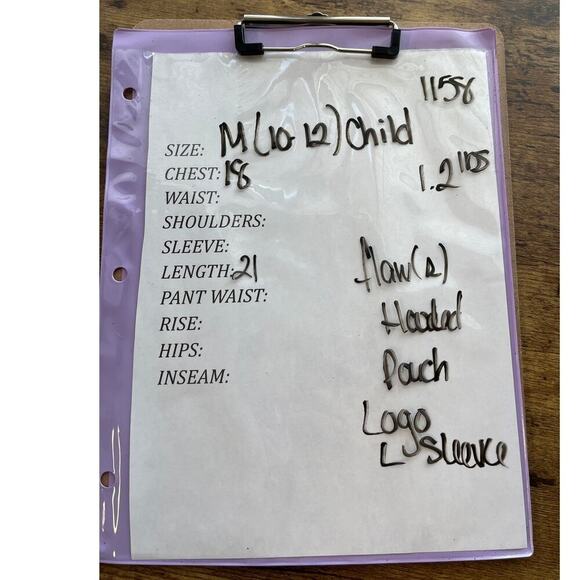 1158
SIZE: M (10-12) Child
CHEST: 18
1.2 lbs
WAIST:
SHOULDERS:
SLEEVE:
LENGTH: 21
flaw(s)
PANT WAIST:
RISE:
Hooded
HIPS:
Pouch
INSEAM:
Logo
L Sleeve